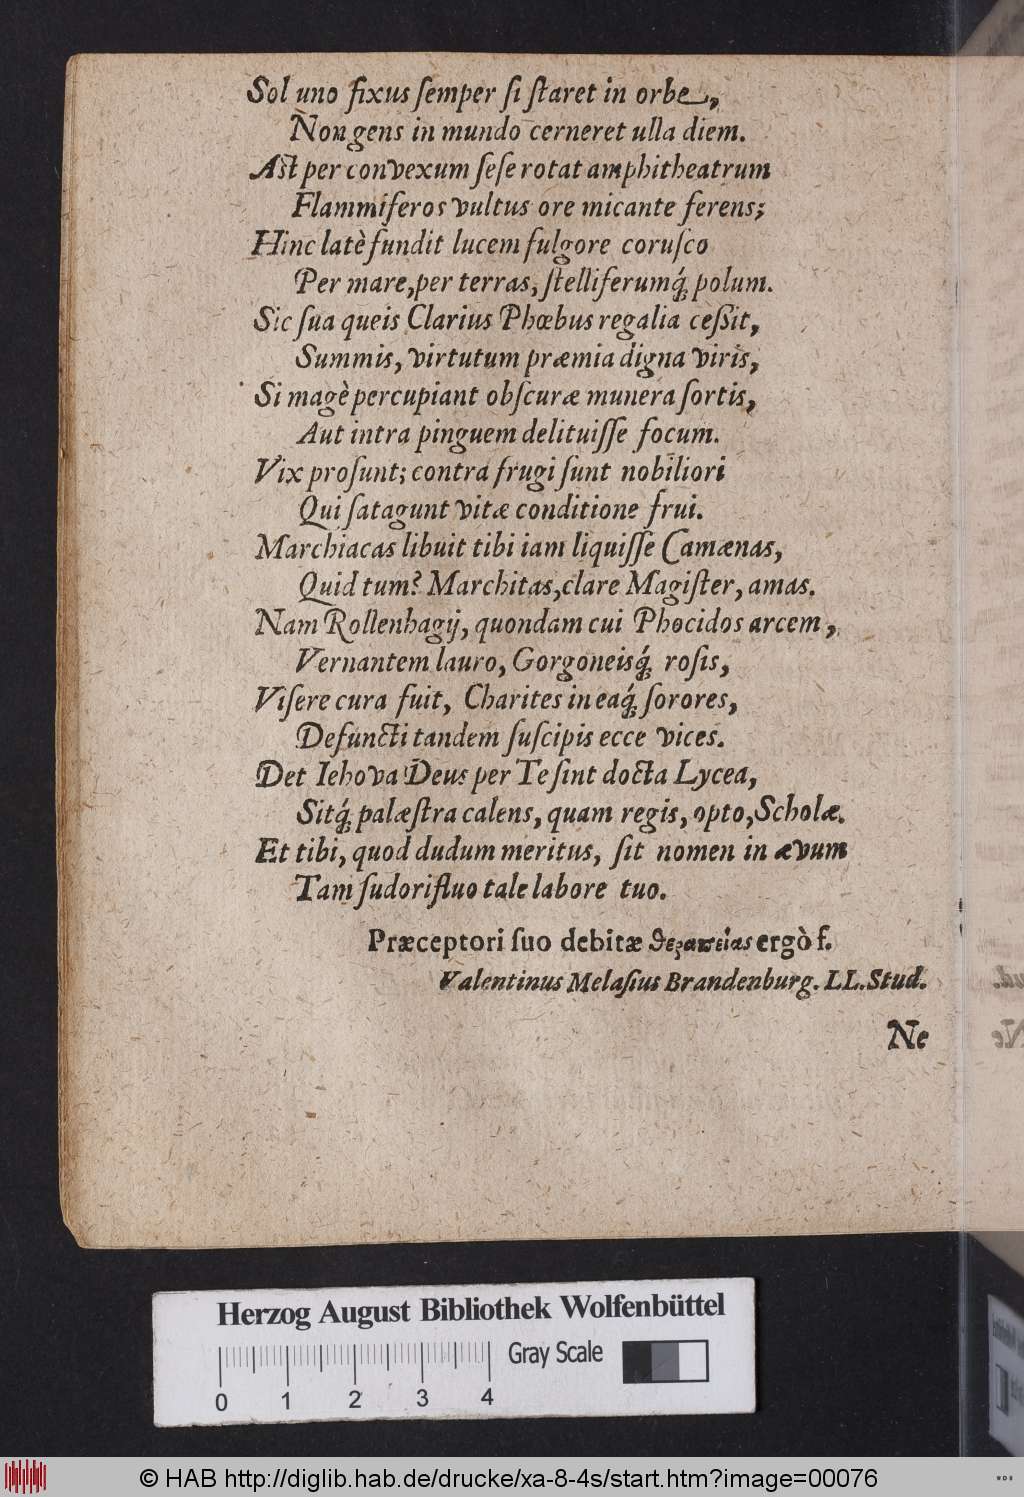 Sol uno fixus ſemper ſi ſtaret in orbe,
Non gens in mundo cerneret ulla diem.
Aſt per convexum ſeſe rotat amphitheatrum
Flammiferos vultus ore micante ferens;
Hinc latè fundit lucem fulgore coruſco
Per mare, per terras, ſtelliferumq́; polum.
Sic ſua queis Clarius Phœbus regalia ceßit,
Summis, virtutum præmia digna viris,
Si magè percupiant obſcuræ munera ſortis,
Aut intra pinguem delituiſſe focum.
Vix proſunt; contra frugi ſunt nobiliori
Qui ſatagunt vitæ conditione frui.
Marchiacas libuit tibi iam liquiſſe Camænas,
Quid tum? Marchitas, clare Magiſter, amas.
Nam Rollenhagij, quondam cui Phocidos arcem,
Vernantem lauro, Gorgoneisq́; roſis,
Viſere cura fuit, Charites in eaq́; ſorores,
Defuncti tandem ſuſcipis ecce vices.
Det Iehova Deus per Te ſint docta Lycea,
Sitq́; palæſtra calens, quam regis, opto, Scholæ.
Et tibi, quod dudum meritus, ſit nomen in ævum
Tam ſudorifluo tale labore tuo.
Præceptori ſuo debitæ θεραπείας ergò f.
Valentinus Melaſius Brandenburg. LL. Stud.
Ne
Herzog August Bibliothek Wolfenbüttel
Gray Scale
0 1 2 3 4
© HAB http://diglib.hab.de/drucke/xa-8-4s/start.htm?image=00076